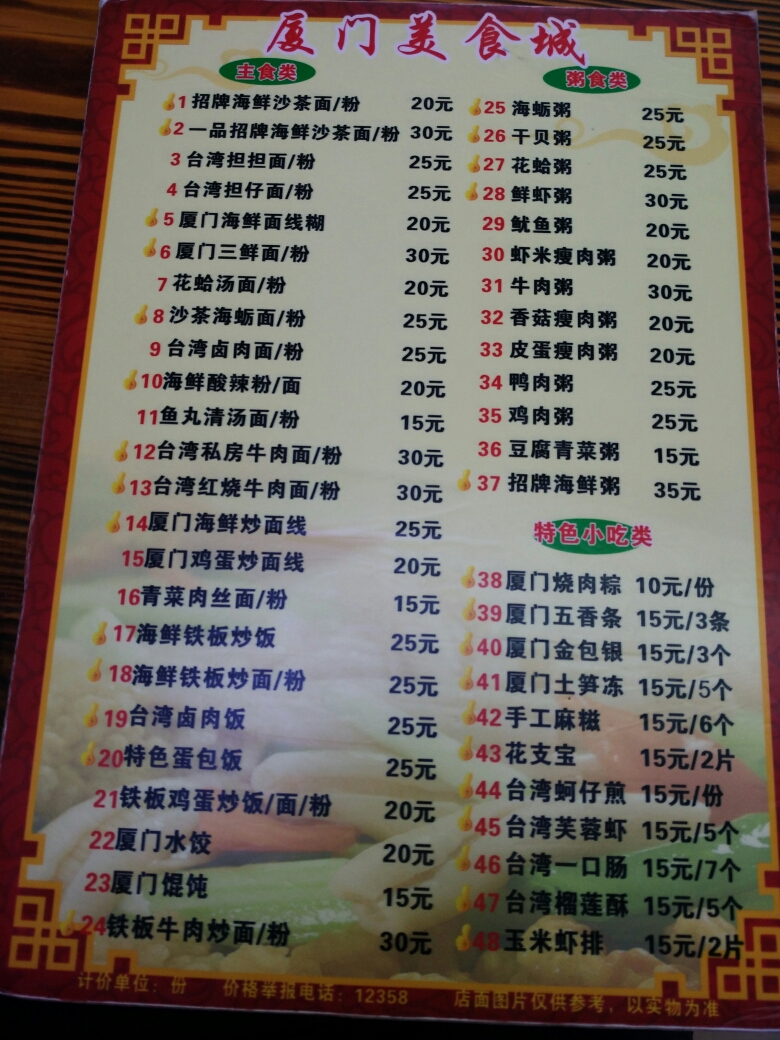 厦门美食城
主食类
1 招牌海鲜沙茶面/粉 20元
2 一品招牌海鲜沙茶面/粉 30元
3 台湾担担面/粉 25元
4 台湾担仔面/粉 25元
5 厦门海鲜面线糊 20元
6 厦门三鲜面/粉 30元
7 花蛤汤面/粉 20元
8 沙茶海蛎面/粉 25元
9 台湾卤肉面/粉 25元
10 海鲜酸辣粉/面 20元
11 鱼丸清汤面/粉 15元
12 台湾私房牛肉面/粉 30元
13 台湾红烧牛肉面/粉 30元
14 厦门海鲜炒面线 25元
15 厦门鸡蛋炒面线 20元
16 青菜肉丝面/粉 15元
17 海鲜铁板炒饭 25元
18 海鲜铁板炒面/粉 25元
19 台湾卤肉饭 25元
20 特色蛋包饭 25元
21 铁板鸡蛋炒饭/面/粉 20元
22 厦门水饺 20元
23 厦门馄饨 15元
24 铁板牛肉炒面/粉 30元
粥食类
25 海蛎粥 25元
26 干贝粥 25元
27 花蛤粥 25元
28 鲜虾粥 30元
29 鱿鱼粥 20元
30 虾米瘦肉粥 20元
31 牛肉粥 30元
32 香菇瘦肉粥 20元
33 皮蛋瘦肉粥 20元
34 鸭肉粥 25元
35 鸡肉粥 25元
36 豆腐青菜粥 15元
37 招牌海鲜粥 35元
特色小吃类
38 厦门烧肉粽 10元/份
39 厦门五香条 15元/3条
40 厦门金包银 15元/3个
41 厦门土笋冻 15元/5个
42 手工麻糍 15元/6个
43 花支宝 15元/2片
44 台湾蚵仔煎 15元/份
45 台湾芙蓉虾 15元/5个
46 台湾一口肠 15元/7个
47 台湾榴莲酥 15元/5个
48 玉米虾排 15元/2片
计价单位：份 价格举报电话：12358 店面图片仅供参考，以实物为准